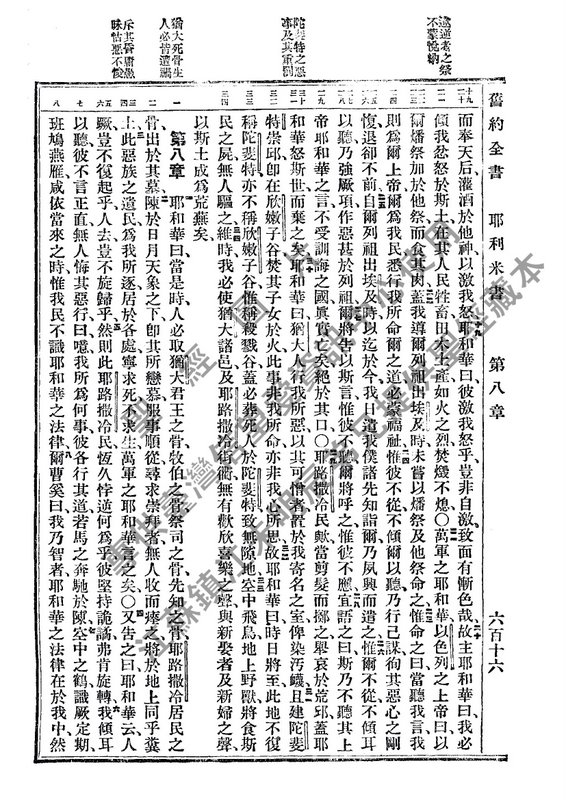 舊約全書 耶利米書 第八章 六百十六
違逆者之祭
不蒙悅納
陀斐特之惡
事及其重罰
猶大死骨生
人必皆遭禍
斥其昏庸愚
昧怙惡不悛
而奉天后灌酒於他神以激我怒耶和華曰彼激我怒乎豈非自激致面有慚色哉故主耶和華曰我必
傾我忿怒於斯土在其人民牲畜田木土產如火之烈焚燬不熄〇萬軍之耶和華以色列之上帝曰以
爾燔祭加於他祭而食其肉蓋我導爾列祖出埃及時未嘗以燔祭及他祭命之惟命之曰當聽我言我
則爲爾上帝爾爲我民悉行我所命爾之道必蒙福祉惟彼不從不傾耳以聽乃行己謀徇其惡心之剛
愎退卻不前自爾列祖出埃及時以迄於今我日遣我僕諸先知詣爾乃夙興而遣之惟爾不從不傾耳
以聽乃強厥項作惡甚於列祖爾將告以斯言惟彼不聽爾將呼之惟彼不應宜語之曰斯乃不聽其上
帝耶和華之言不受訓誨之國眞實亡矣絕於其口〇耶路撒冷民歟當剪髮而擲之舉哀於荒邱蓋耶
和華怒斯世而棄之矣耶和華曰猶大人行我所惡以其可憎者置於我寄名之室俾染汚衊且建陀斐
特崇邱卽在欣嫩子谷焚其子女於火此事非我所命亦非我心所思故耶和華曰時日將至此地不復
稱陀斐特亦不稱欣嫩子谷惟稱殺戮谷蓋必葬死人於陀斐特致無隙地空中飛鳥地上野獸將食斯
民之屍無人驅之維時我必使猶大諸邑及耶路撒冷街衢無有歡欣喜樂之聲與新娶者及新婦之聲
以斯土成爲荒蕪矣
第八章 耶和華曰當是時人必取猶大君王之骨牧伯之骨祭司之骨先知之骨耶路撒冷居民之
骨出於其墓陳於日月天象之下卽其所戀慕服事順從尋求崇拜者無人收而瘞之將於地上同乎糞
土此惡族之遺民爲我所逐居於各處寧求死不求生萬軍之耶和華言之矣〇又告之曰耶和華云人
蹶豈不復起乎人去豈不旋歸乎然則此耶路撒冷民恆久悖逆何爲乎彼堅持詭譎弗肯旋轉我傾耳
以聽彼不言正直無人悔其惡行曰噫我所爲何事彼各行其道若馬之奔馳於陳空中之鶴識厥定期
班鳩燕雁咸依當來之時惟我民不識耶和華之法律爾曹奚曰我乃智者耶和華之法律在於我中然